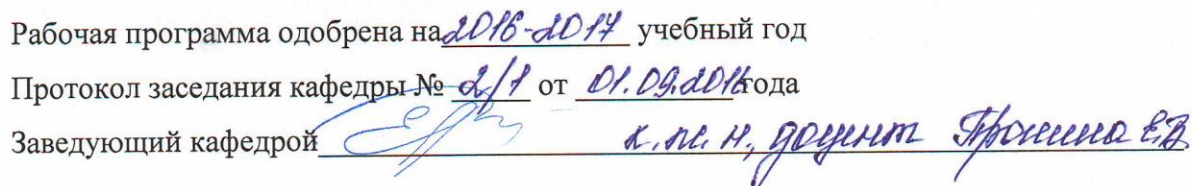 Рабочая программа одобрена на 2016-2017 учебный год
Протокол заседания кафедры № 2/1 от 01.09.2016 года
Заведующий кафедрой к.т.н., доцент Е.В.